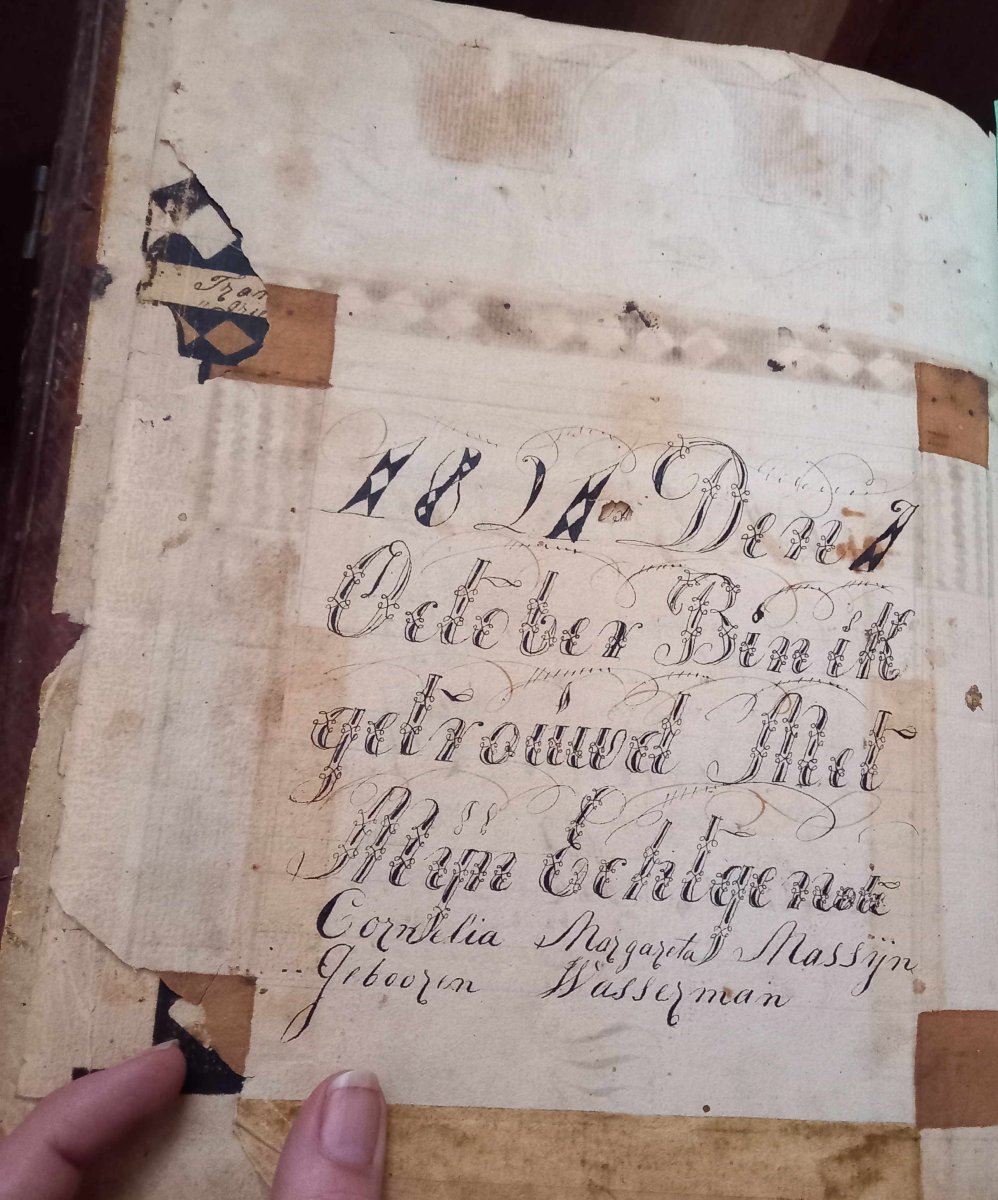 Tran
1821 Den 1
October Bin ik
getrouwd Met
Mijn Echtgenote
Cornelia Margareta Massÿn
Gebooren Wasserman